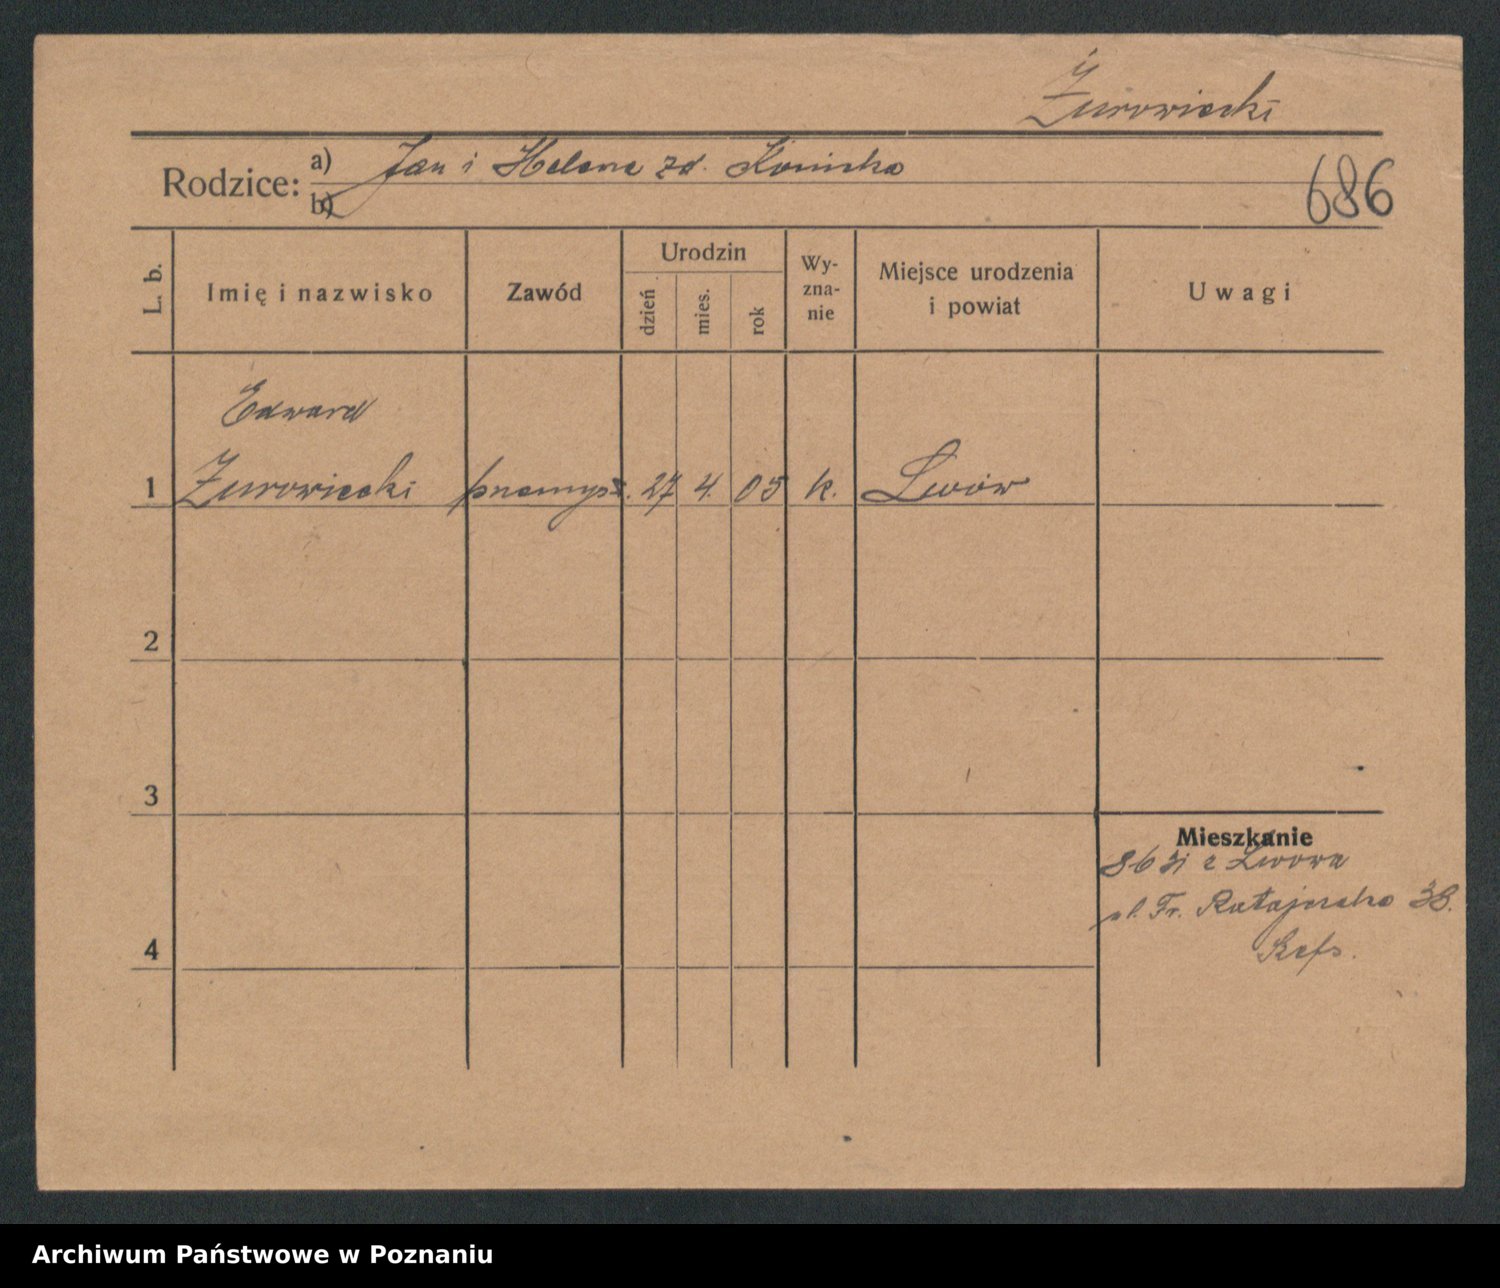 Żurowiecki
Rodzice: a) Jan i Helena zd. Konińska
b)
686
L. b.
Imię i nazwisko
Zawód
Urodzin
dzień
mies.
rok
Wy-
zna-
nie
Miejsce urodzenia
i powiat
Uwagi
Edward
1 Żurowiecki przemysł. 27 4. 05 k. Lwów
2
3
Mieszkanie
8 6 31 z Lwowa
ul. Fr. Ratajczaka 38.
4
Archiwum Państwowe w Poznaniu